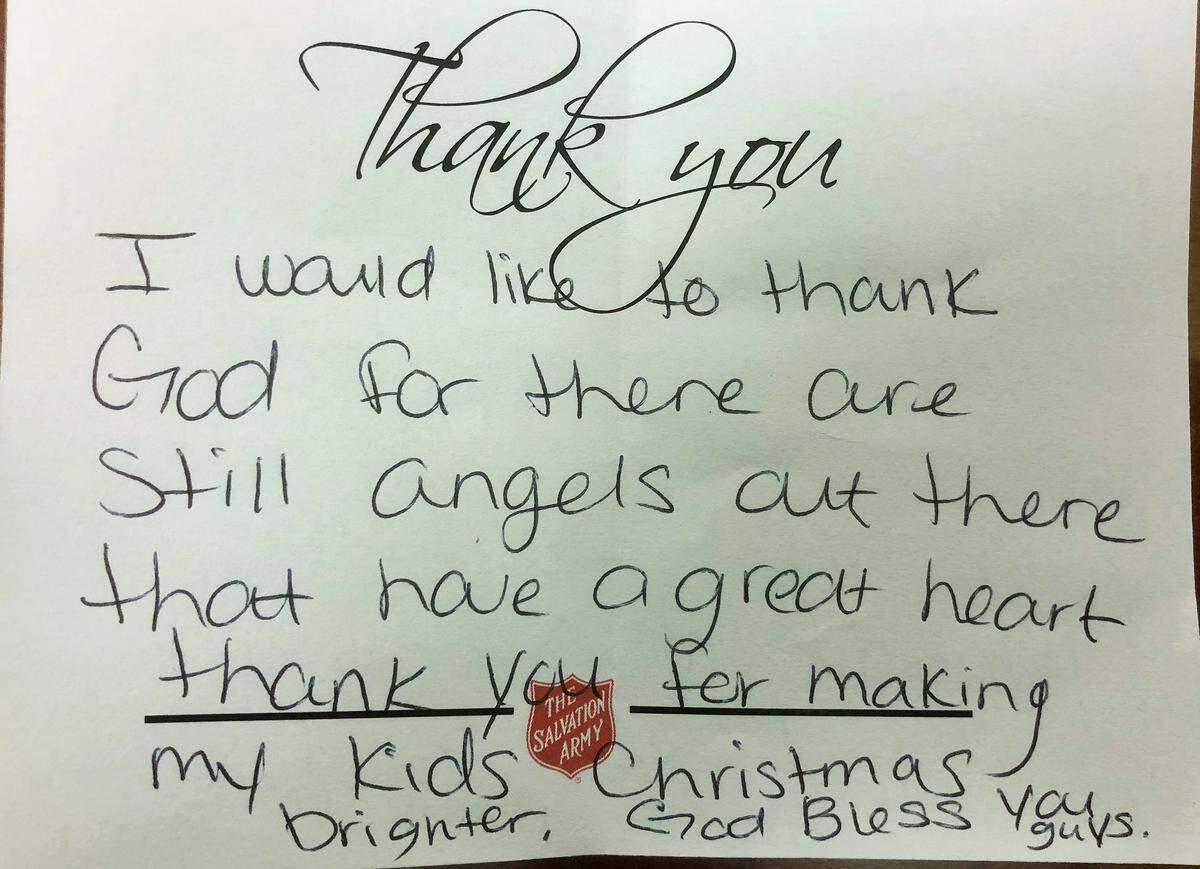 Thank you
I would like to thank
God for there are
Still angels out there
that have a great heart
thank you for making
THE
SALVATION
ARMY
my kids Christmas
brighter. God Bless you
guys.